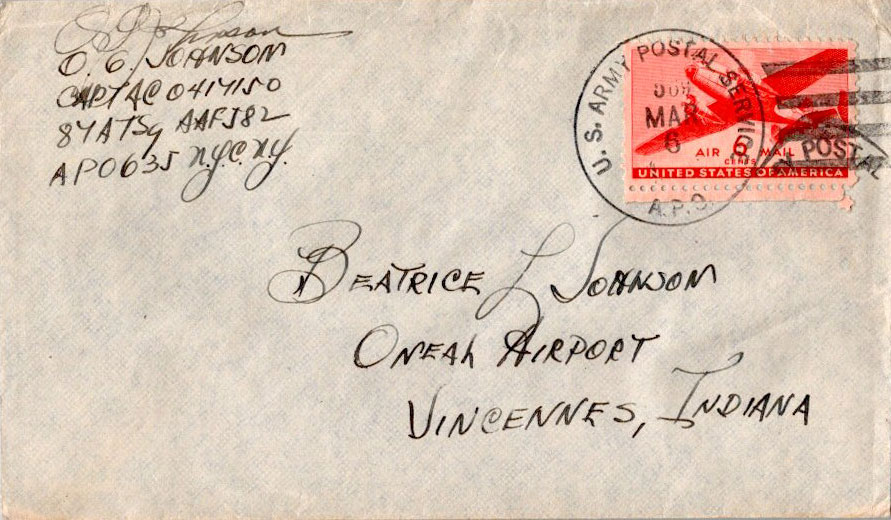 O. G. JOHNSON
CAPT AC 0417150
87 ATSq AAF 582
APO 635 N.Y.C. N.Y.
U.S. ARMY POSTAL SERVICE
MAR
6
A.P.O.
AIR 6 MAIL
CENTS
UNITED STATES OF AMERICA
POSTAL
BEATRICE L JOHNSON
ONEAL AIRPORT
VINCENNES, INDIANA